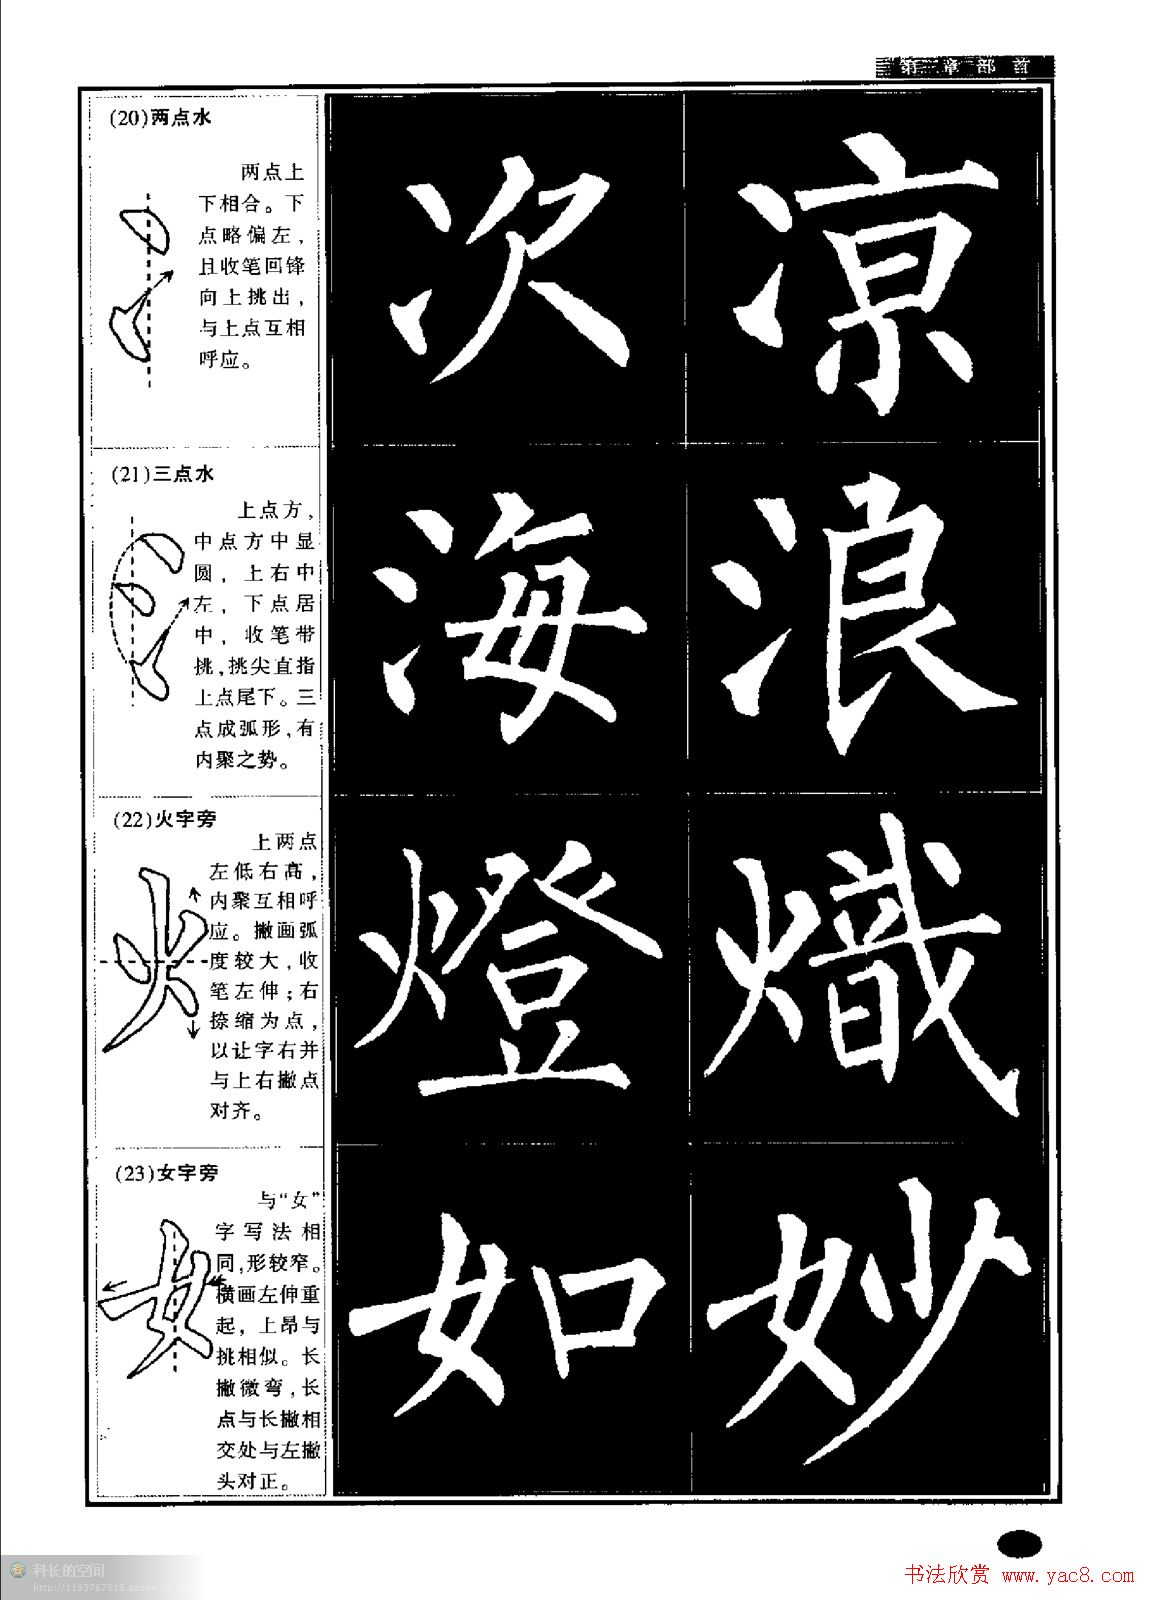 第二章部首
(20)两点水
两点上
下相合。下
点略偏左，
且收笔回锋
向上挑出，
与上点互相
呼应。
次 凉
(21)三点水
上点方，
中点方中显
圆，上右中
左，下点居
中，收笔带
挑，挑尖直指
上点尾下。三
点成弧形，有
内聚之势。
海 浪
(22)火字旁
上两点
左低右高，
内聚互相呼
应。撇画弧
度较大，收
笔左伸；右
捺缩为点，
以让字右并
与上右撇点
对齐。
燈 熾
(23)女字旁
与“女”
字写法相
同，形较窄。
横画左伸重
起，上昂与
挑相似。长
撇微弯，长
点与长撇相
交处与左撇
头对正。
如 妙
科长的空间
http://1193767618.qzone.qq.com
书法欣赏 www.yac8.com